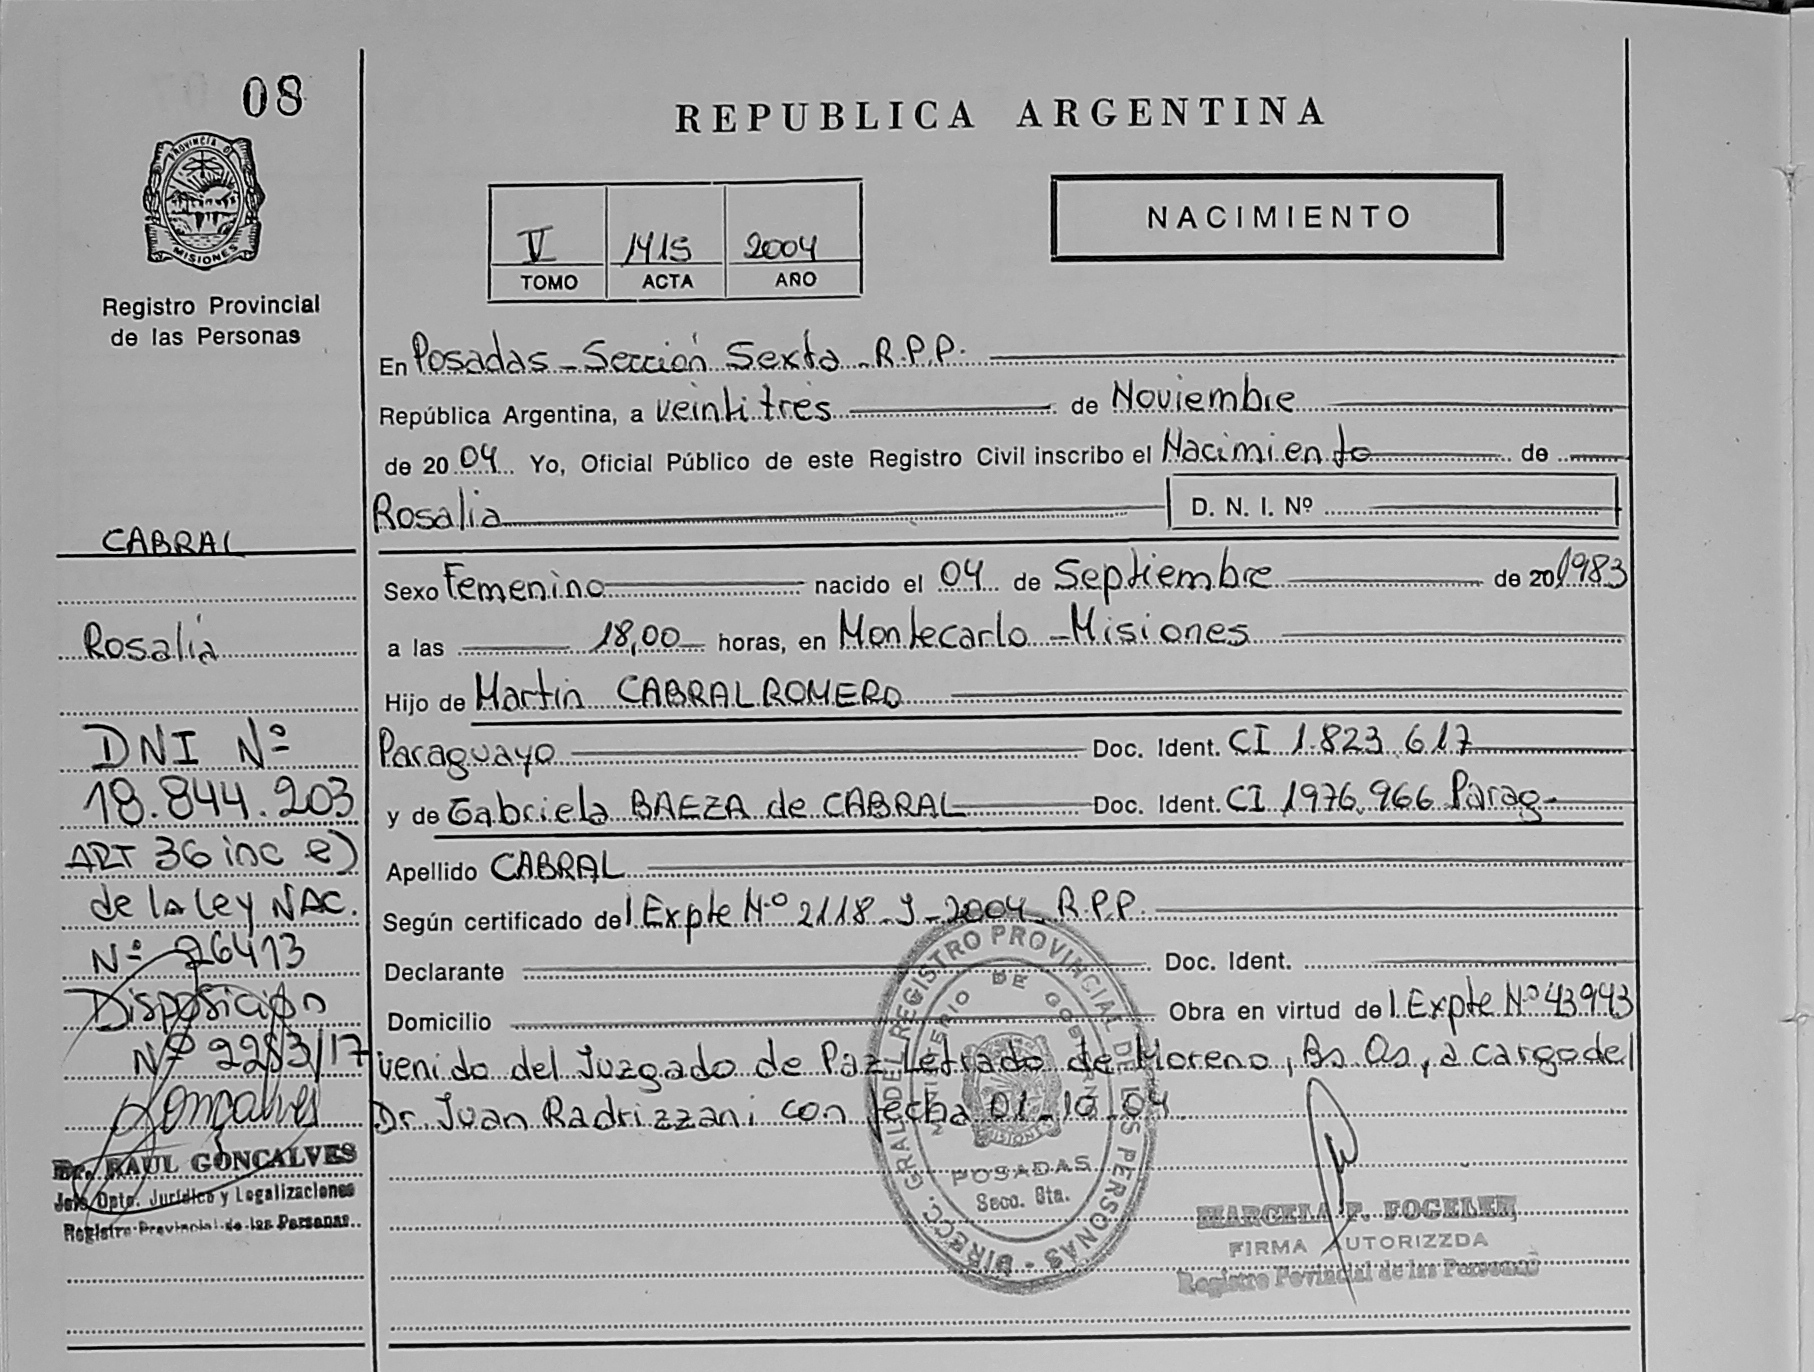 08
REPUBLICA ARGENTINA
PROVINCIA DE
MISIONES
Registro Provincial
de las Personas
NACIMIENTO
V 1415 2004
TOMO ACTA AÑO
En Posadas - Sección Sexta - R.P.P.
República Argentina, a veintitres de Noviembre
de 20 04 Yo, Oficial Público de este Registro Civil inscribo el Nacimiento de
Rosalia D. N. I. Nº
CABRAL
Rosalia
DNI Nº
18.844.203
ART 36 inc e)
de la Ley NAC.
Nº 26413
Disposición
Nº 2253/17
Gonçalves
Dr. RAUL GONÇALVES
Jefe Dpto. Jurídico y Legalizaciones
Registro Provincial de las Personas
Sexo Femenino nacido el 04 de Septiembre de 20 1983
a las 18,00 horas, en Montecarlo - Misiones
Hijo de Martin CABRAL ROMERO
Paraguayo Doc. Ident. CI 1.823.617
y de Gabriela BAEZA de CABRAL Doc. Ident. CI 1976.966 Parag-
Apellido CABRAL
Según certificado del Expte Nº 2118-J-2004 R.P.P.
Declarante Doc. Ident.
Domicilio Obra en virtud del Expte Nº 43943
venido del Juzgado de Paz Letrado de Moreno, Bs. As, a cargo del
Dr. Juan Radrizzani con fecha 01-10-04
DIRECC. GRAL DEL REGISTRO PROVINCIAL DE LAS PERSONAS
MINISTERIO DE GOBIERNO
MISIONES
POSADAS
Secc. 6ta.
MARCELA F. FOGELER
FIRMA AUTORIZZDA
Registro Povincial de las Personas